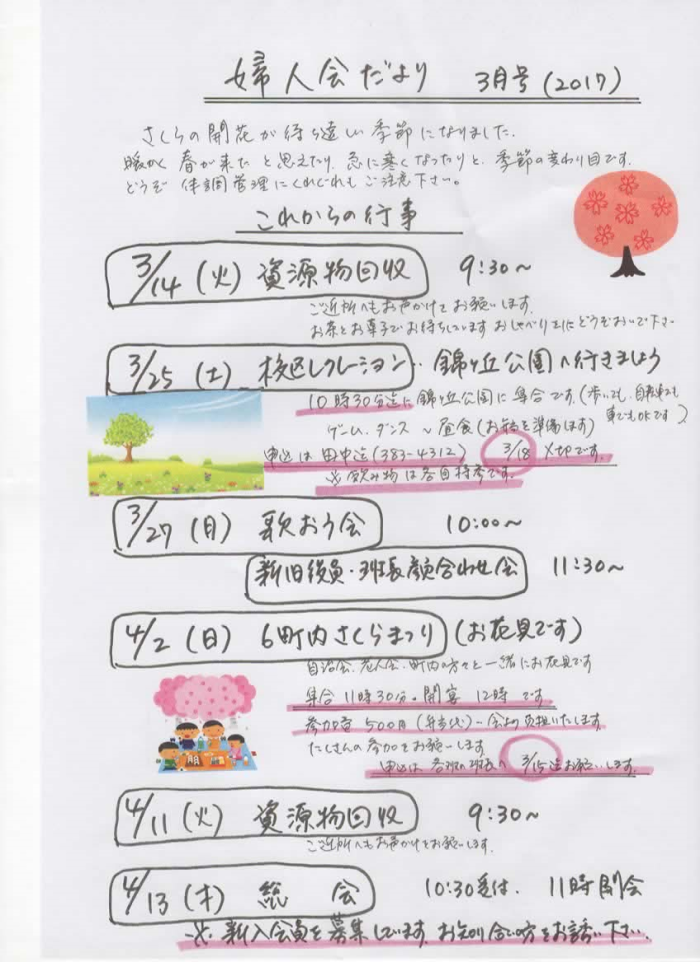 婦人会だより 3月号(2017)
さくらの開花が待ち遠しい季節になりました。
暖かく春が来たと思えたり、急に寒くなったりと、季節の変わり目です。
どうぞ体調管理にくれぐれもご注意下さい。
これからの行事
3/14(火) 資源物回収 9:30～
ご近所へもお声かけてお願いします。
お茶とお菓子でお待ちしています おしゃべりにどうぞおいで下さい
3/25(土) 校区レクレーション・・錦ヶ丘公園へ行きましょう
10時30分迄に錦ヶ丘公園に集合です。(歩いても、自転車でも
車でもOKです)
ゲーム、ダンス ～昼食(お弁当を準備します)
申込は田中迄(383-4312) 3/18〆切です。
※飲み物は各自持参です。
3/27(月) 歌おう会 10:00～
新旧役員・班長顔合わせ会 11:30～
4/2(日) 6町内さくらまつり(お花見です)
自治会、老人会、町内の方々と一緒にお花見です
集合11時30分・開宴12時です
参加費500円(弁当代)～会より負担いたします
たくさんの参加をお願いします
申込は各班の班長へ 3/15迄お願いします。
4/11(火) 資源物回収 9:30～
ご近所へもお声かけをお願いします。
4/13(木) 総会 10:30受付. 11時開会
※. 新入会員を募集しています。お知り合いの方をお誘い下さい。